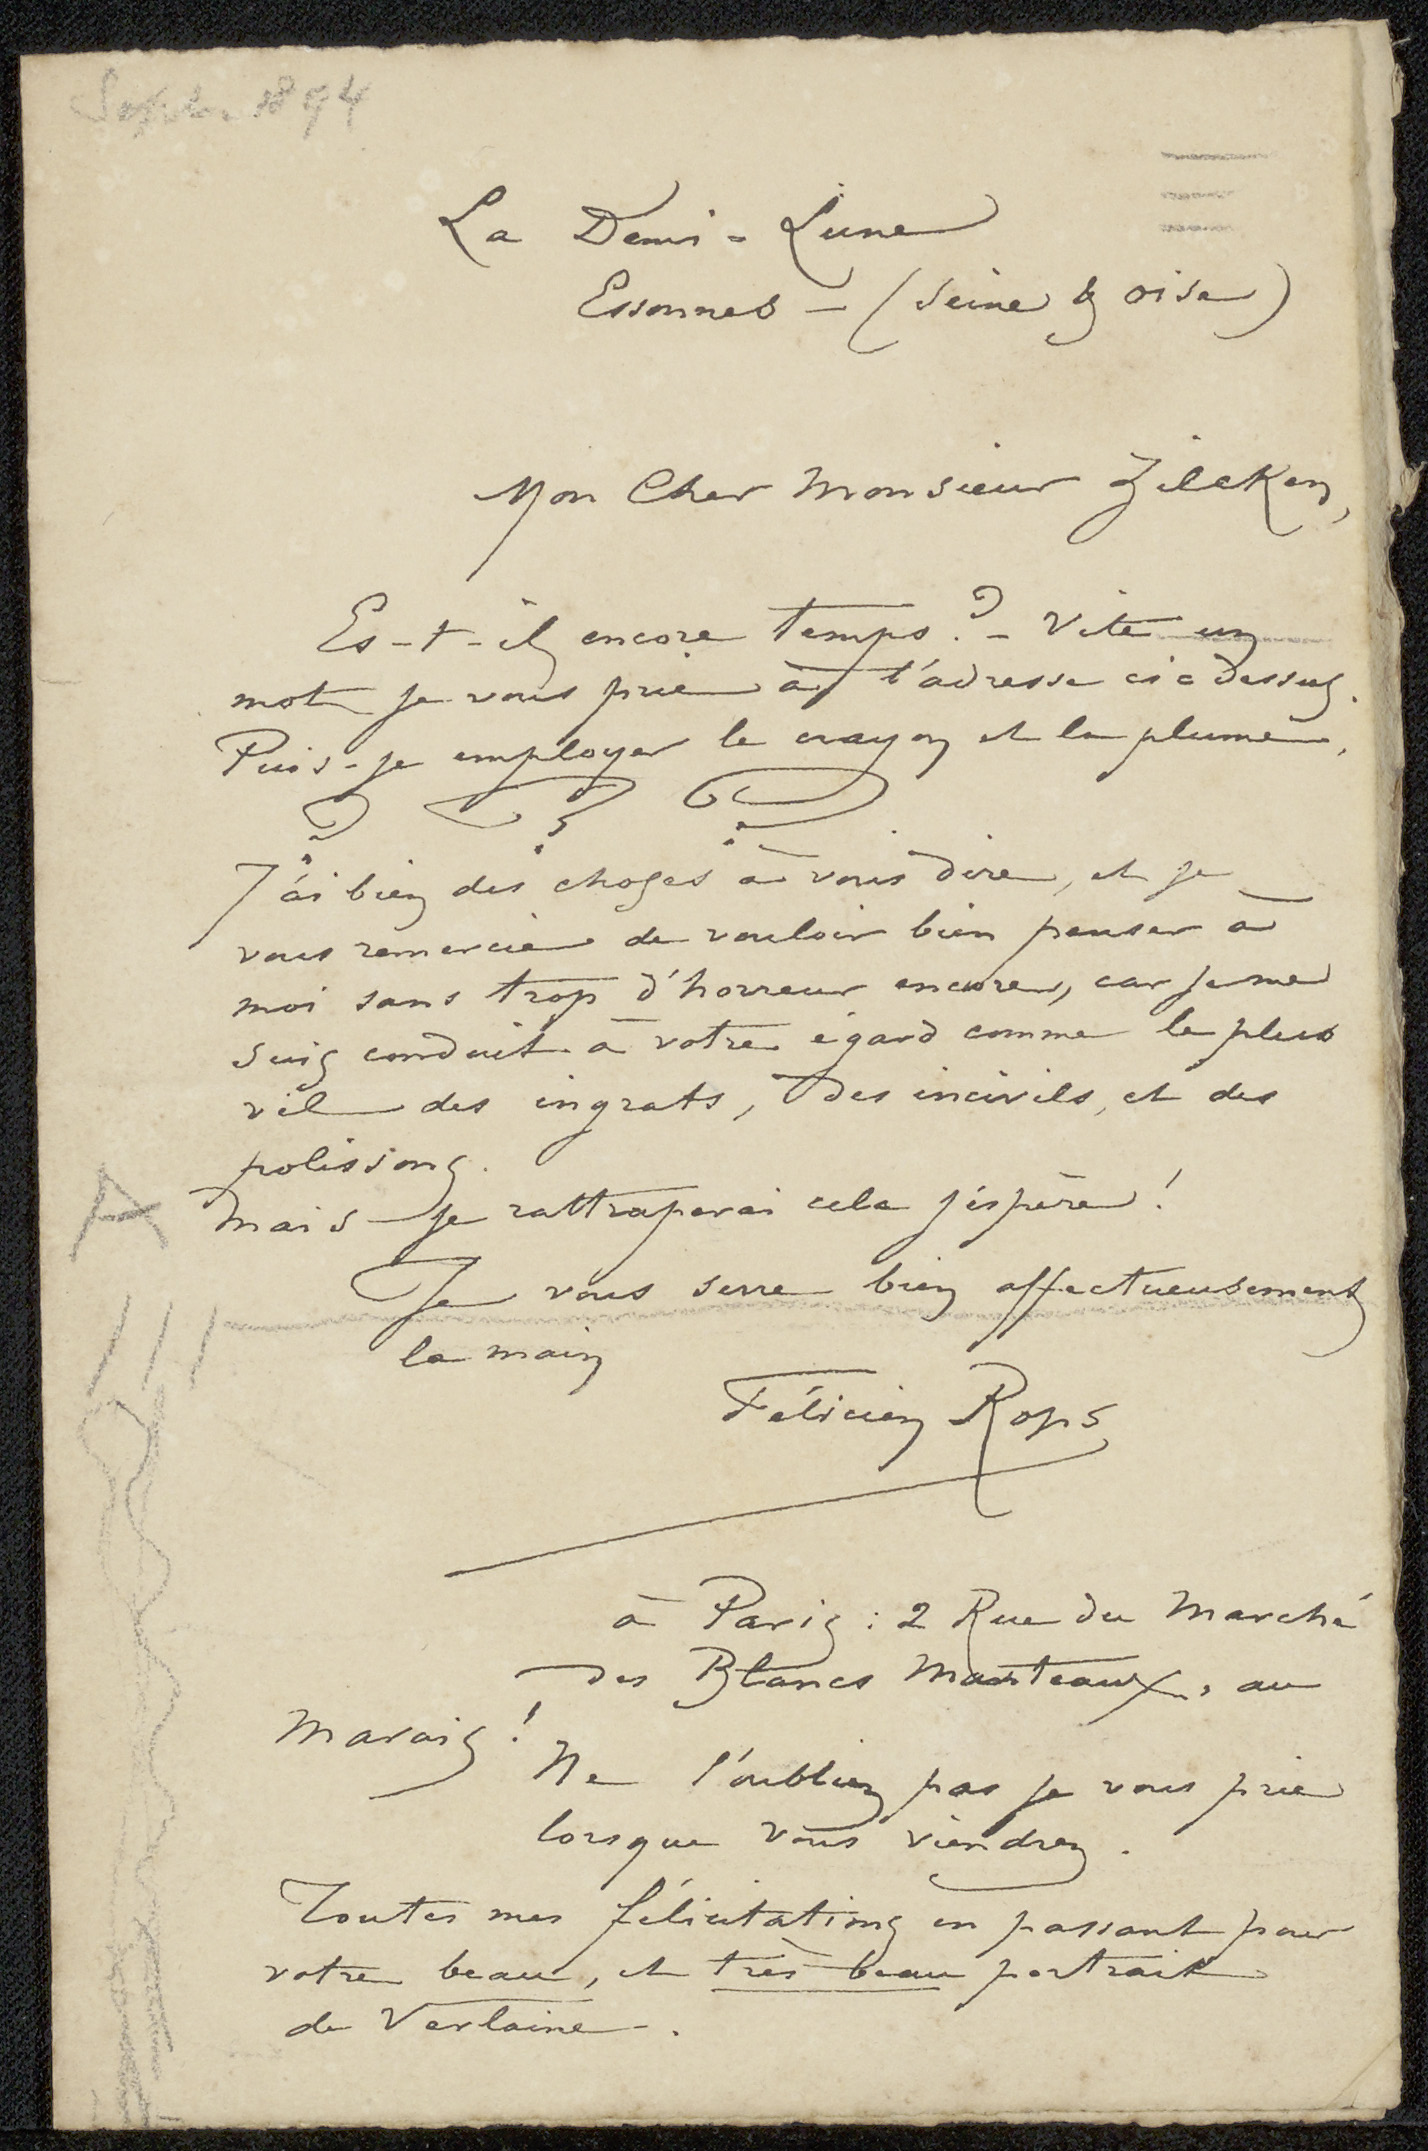 Septbr 1894
La Demi-Lune
Essonnes - (Seine & oise)
Mon Cher Monsieur Zilcken,
Es-t-il encore temps? - Vite un
mot je vous prie à l'adresse ci dessus.
Puis-je employer le crayon et la plume,
? ? ?
J'ai bien des choses à vous dire, et je
vous remercie de vouloir bien penser à
moi sans trop d'horreur encore, car je me
suis conduit à votre égard comme le plus
vil des ingrats, des incivils, et des
polissons.
Mais je rattraperai cela j'espère!
Je vous serre bien affectueusement
la main
Félicien Rops
A
à Paris : 2 Rue du Marché
des Blancs Manteaux, au
Marais!
Ne l'oubliez pas je vous prie
lorsque vous viendrez.
Toutes mes félicitations en passant pour
votre beau, et très beau portrait
de Verlaine -.